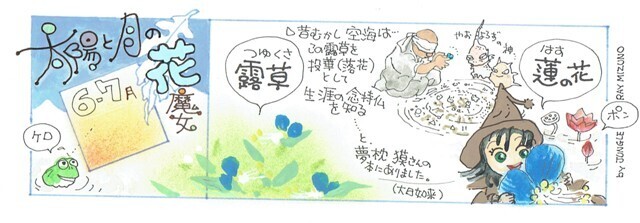 太陽と月の
花
魔女
6・7月
ケロ
つゆくさ
露草
▷昔むかし空海は…
この露草を
投華(落花)
として
生涯の念持仏
を知る
…と、
夢枕 獏さんの
本にありました。
(大日如来)
やおよろずの神、
はす
蓮の花
ポン
by JUNGLEGIRL RAY MIZUNO